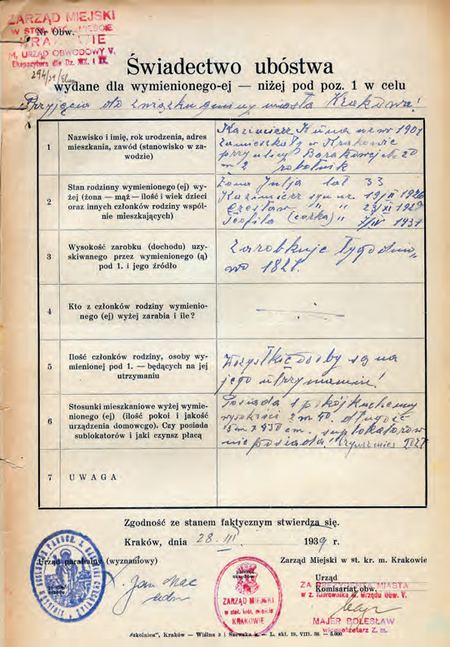 ZARZĄD MIEJSKI
W STOŁ. KRÓL. MIEŚCIE
KRAKOWIE
Nr Obw.
M. URZĄD OBWODOWY V.
Ekspozytura dla Dz. XX. i IX.
Świadectwo ubóstwa
wydane dla wymienionego-ej — niżej pod poz. 1 w celu
Przyjęcia do związku gminy miasta Krakowa!
1 Nazwisko i imię, rok urodzenia, adres
mieszkania, zawód (stanowisko w zawodzie)
Kazimierz ur w 1901
zamieszkały w Krakowie
przy ulicy Barakowej L. 20
m 2 robotnik
2 Stan rodzinny wymienionego (ej) wyżej
(żona — mąż — ilość i wiek dzieci
oraz innych członków rodziny wspólnie
mieszkających)
Żona Julja lat 33
Kazimierz syn ur 19/II
Czesław " " 23/II
(córka) " 7/IV 1931
3 Wysokość zarobku (dochodu) uzyskiwanego
przez wymienionego (ą)
pod 1. i jego źródło
Zarobkuje tygodniowo
18 zł.
4 Kto z członków rodziny wymienionego
(ej) wyżej zarabia i ile?
5 Ilość członków rodziny, osoby wymienionej
pod 1. — będących na jej
utrzymaniu
Wszystkie osoby są na
jego utrzymaniu!
6 Stosunki mieszkaniowe wyżej wymienionego
(ej) (ilość pokoi i jakość
urządzenia domowego). Czy posiada
sublokatorów i jaki czynsz płacą
Posiada 1 pokój kuchenny
wysokości 2 m 40. długości
5 m x 430 cm. suplokatorów
nie posiada.
7 UWAGA
Zgodność ze stanem faktycznym stwierdza się.
Kraków, dnia 28 III. 1939 r.
Urząd parafialny (wyznaniowy)
Zarząd Miejski w st. kr. m. Krakowie
Urząd
Komisariat obw.
ZARZĄD MIEJSKI
w stoł. król. mieście
KRAKOWIE
MAJER BOLESŁAW
„Szkolnica", Kraków —